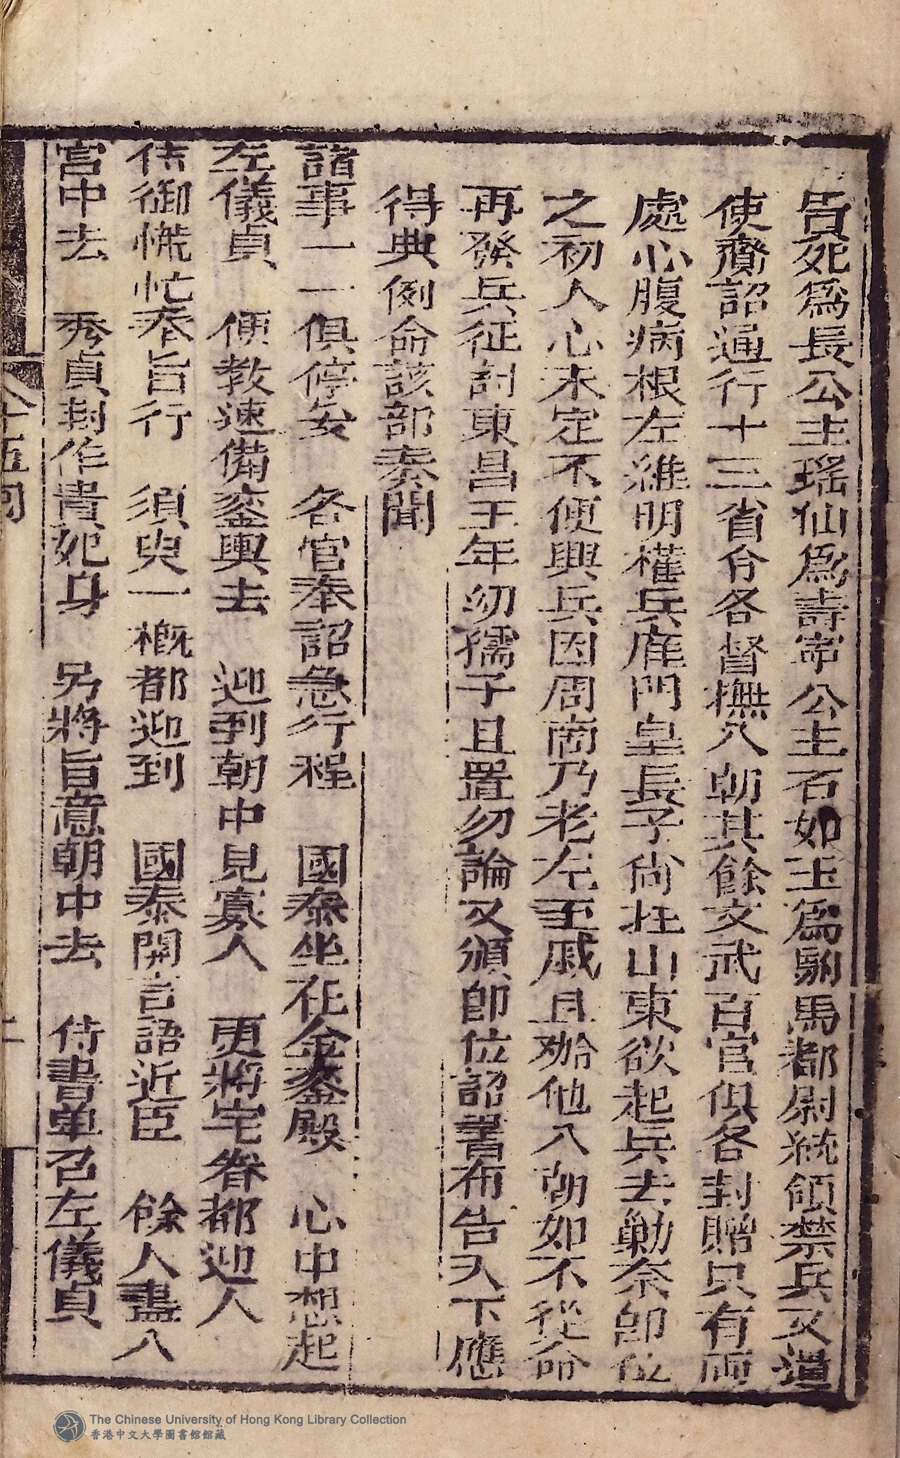 告死為長公主瑤仙為壽寧公主石如玉為駙馬都尉統領禁兵又遣
使齎詔通行十三省令各督撫入朝其餘文武百官俱各封贈只有両
處心腹病根左維明權兵鴈門皇長子尙在山東欲起兵去勦奈即位
之初人心未定不便興兵因周商乃老左至戚且𠡠他入朝如不從命
再發兵征討東昌王年幼孺子且置勿論又頒即位詔書布告天下應
得典例命該部奏聞
諸事一一俱停妥　各官奉詔急行程　國泰坐在金鑾殿　心中想起
左儀貞　便教速備鑾輿去　迎到朝中見寡人　更將宅眷都迎入
侍御慌忙奉旨行　須臾一概都迎到　國泰開言語近臣　餘人盡入
宮中去　秀貞封作貴妃身　另將旨意朝中去　侍書单召左儀貞
十五囘
二
The Chinese University of Hong Kong Library Collection
香港中文大學圖書館館藏